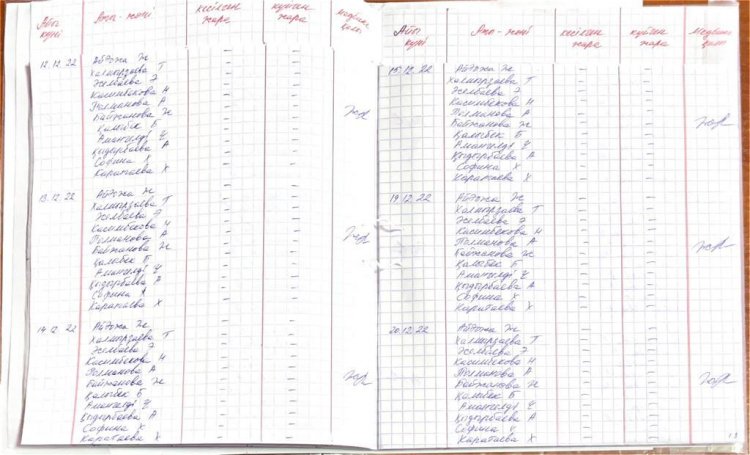 Айы күні Аты - жөні кесілген жара күйген жара медбике қолы
12.12.22 Айдожа Ж
Халмырзаева Т
Жетбаева Э
Касимбекова Н
Полманова А
Байжанова Ж
Қалыбек Б
Амангелді Ұ
Қыдырбаева А
Софина Х
Каратаева Х
13.12.22 Айдожа Ж
Халмырзаева Т
Жетбаева Э
Касимбекова Н
Полманова А
Байжанова Ж
Қалыбек Б
Амангелді Ұ
Қыдырбаева А
Софина Х
Каратаева Х
14.12.22 Айдожа Ж
Халмырзаева Т
Жетбаева Э
Касимбекова Н
Полманова А
Байжанова Ж
Қалыбек Б
Амангелді Ұ
Қыдырбаева А
Софина Х
Каратаева Х
Айы күні Аты - жөні кесілген жара күйген жара Медбике қолы
15.12.22 Айдожа Ж
Халмырзаева Т
Жетбаева Э
Касимбекова Н
Полманова А
Байжанова Ж
Қалыбек Б
Амангелді Ұ
Қыдырбаева А
Софина Х
Каратаева Х
19.12.22 Айдожа Ж
Халмырзаева Т
Жетбаева Э
Касимбекова Н
Полманова А
Байжанова Ж
Қалыбек Б
Амангелді Ұ
Қыдырбаева А
Софина Х
Каратаева Х
20.12.22 Айдожа Ж
Халмырзаева Т
Жетбаева Э
Касимбекова Н
Полманова А
Байжанова Ж
Қалыбек Б
Амангелді Ұ
Қыдырбаева А
Софина Х
Каратаева Х